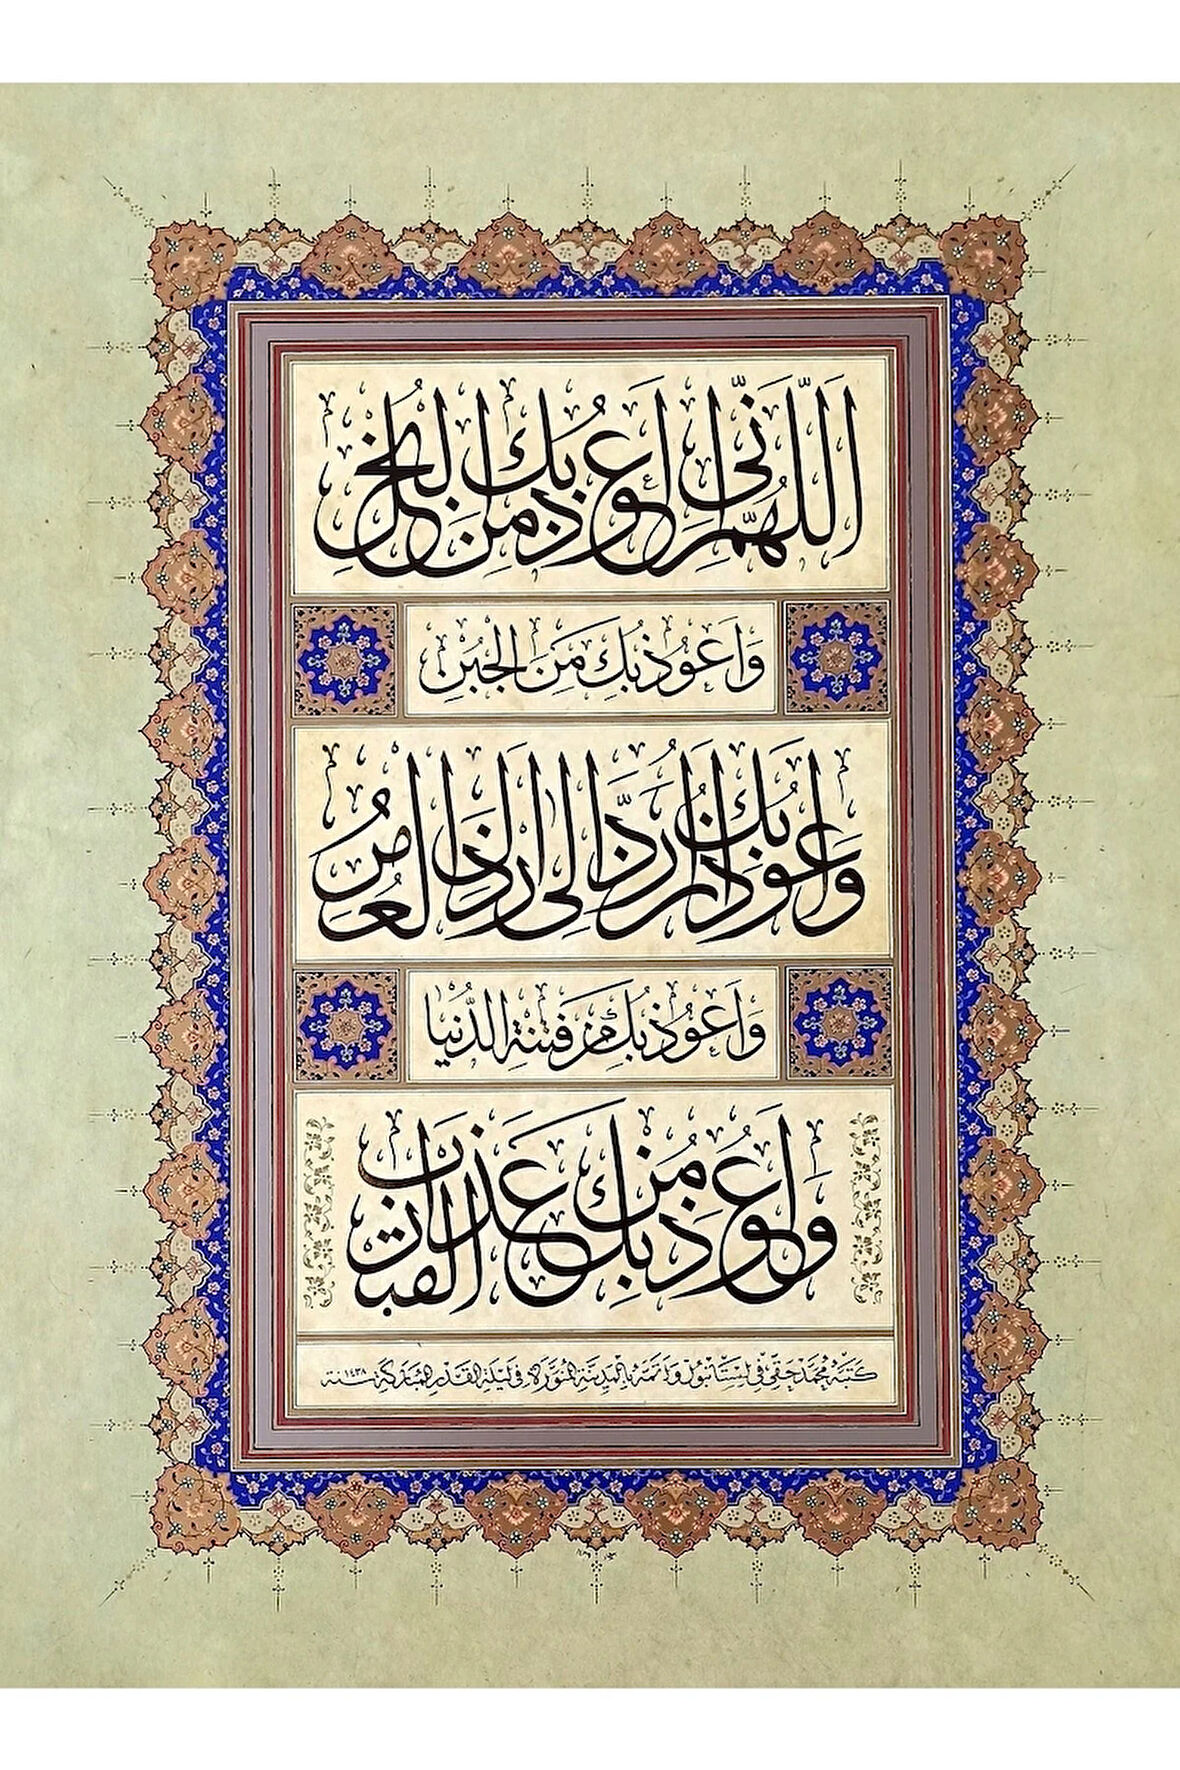 اَللّٰهُمَّ اِنِّى اَعُوذُ بِكَ مِنَ الْبُخْلِ
وَاَعُوذُ بِكَ مِنَ الْجُبْنِ
وَاَعُوذُ بِكَ اَنْ اُرَدَّ اِلٰى اَرْذَلِ الْعُمُرِ
وَاَعُوذُ بِكَ مِنْ فِتْنَةِ الدُّنْيَا
وَاَعُوذُ بِكَ مِنْ عَذَابِ الْقَبْرِ
كَتَبَهُ مُحَمَّد حَقِّي فِي اِسْتَانْبُولَ وَاَتَمَّهُ بِالْمَدِينَةِ الْمُنَوَّرَةِ فِي لَيْلَةِ الْقَدْرِ الْمُبَارَكَةِ سنة ١٤٣٨